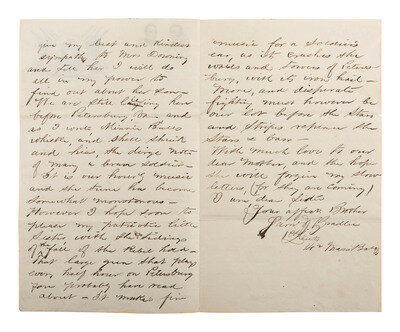 give my best and kindest
sympathy to Mrs Downing
and tell her I will do
all in my power to
find out about her son –
We are still laying here
before Petersburg Va. and
as I write Minnie Balls
whistle and shell shriek
and hiss, the dirge notes
of many a brave soldier –
It is our hourly music
and the tune has become
somewhat monotonous –
However I hope soon to
please my patriotic little
sister with the tidings
of the fall of the Rebel hold
That large gun that plays
every half hour on Petersburg
you probably have read
about – It makes fine
music for a Soldier's
ear, as it crashes the
walls and Towers of Peters-
burg, with its iron hail –
More, and desperate
fighting must however be
our lot before the Stars
and Stripes replace the
Stars & Bars –
With much love to our
dear Mother, and the hope
she will forgive my slow
letters, (for they are coming)
I am, dear Sister
Your affect Brother
Lieut